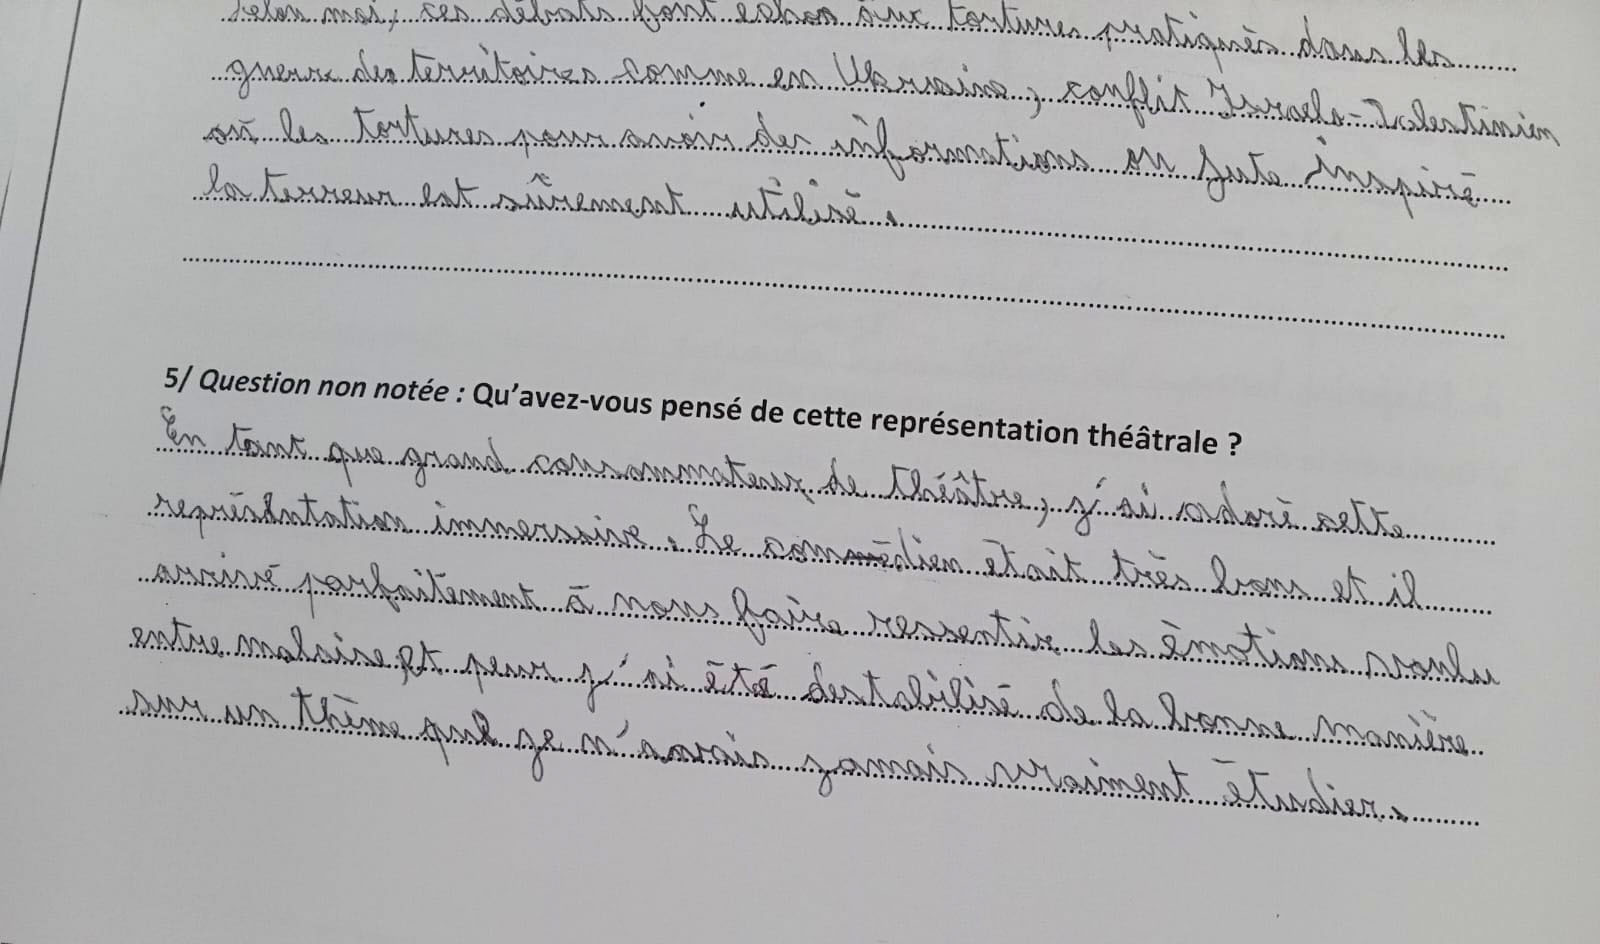 Selon moi, ces débats font echos aux tortures pratiqués dans les
guerre des territoires comme en Ukraine, conflit Israelo-Palestinien
où les tortures pour avoir des informations ou juste inspiré
la terreur est sûrement utilisé.
5/ Question non notée : Qu'avez-vous pensé de cette représentation théâtrale ?
En tant que grand consommateur de théâtre, j'ai adoré cette
représentation immersive. Le commédien était très bons et il
arrivé parfaitement à nous faire ressentir les émotions voulu
entre malaise et peur j'ai été destabilisé de la bonne manière
sur un thème que je n'avais jamais vraiment étudier.